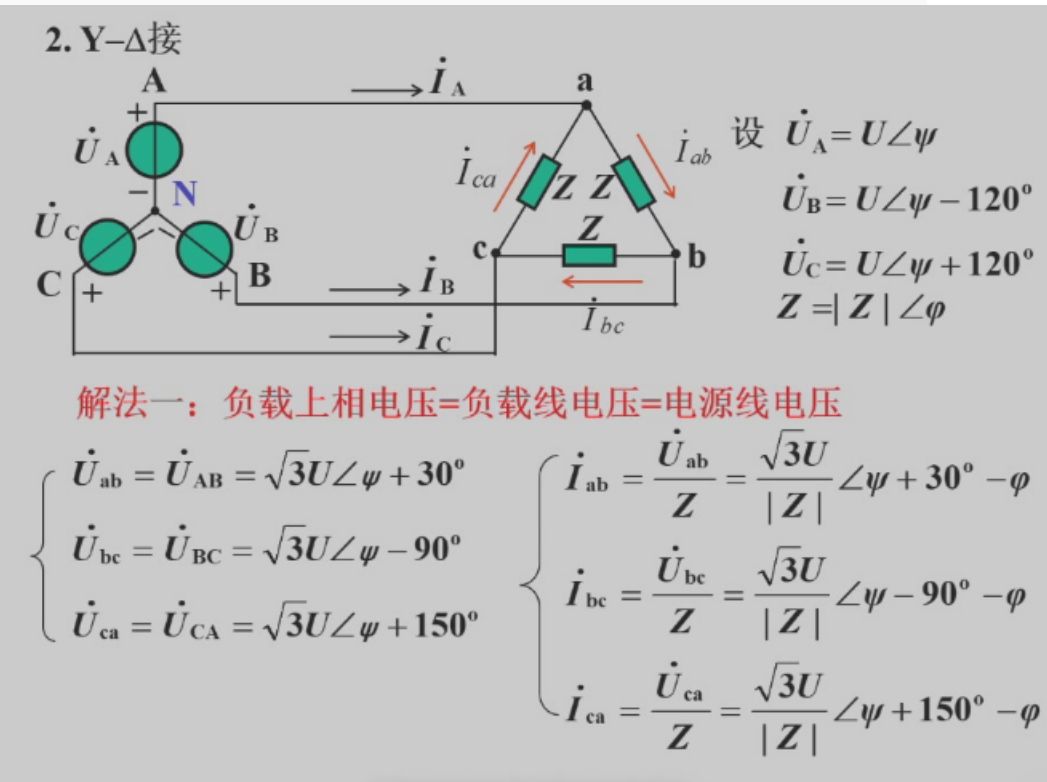 2. Y–Δ接
A
İ_A
a
+
U̇_A
−
N
İ_ca
Z
Z
İ_ab
U̇_C
U̇_B
Z
c
b
C
+
+
B
İ_B
İ_bc
İ_C
设 U̇_A= U∠ψ
U̇_B= U∠ψ − 120°
U̇_C= U∠ψ + 120°
Z =| Z | ∠φ
解法一：负载上相电压=负载线电压=电源线电压
U̇_ab = U̇_AB = √3U∠ψ + 30°
U̇_bc = U̇_BC = √3U∠ψ − 90°
U̇_ca = U̇_CA = √3U∠ψ + 150°
İ_ab = U̇_ab / Z = √3U / | Z | ∠ψ + 30° − φ
İ_bc = U̇_bc / Z = √3U / | Z | ∠ψ − 90° − φ
İ_ca = U̇_ca / Z = √3U / | Z | ∠ψ + 150° − φ